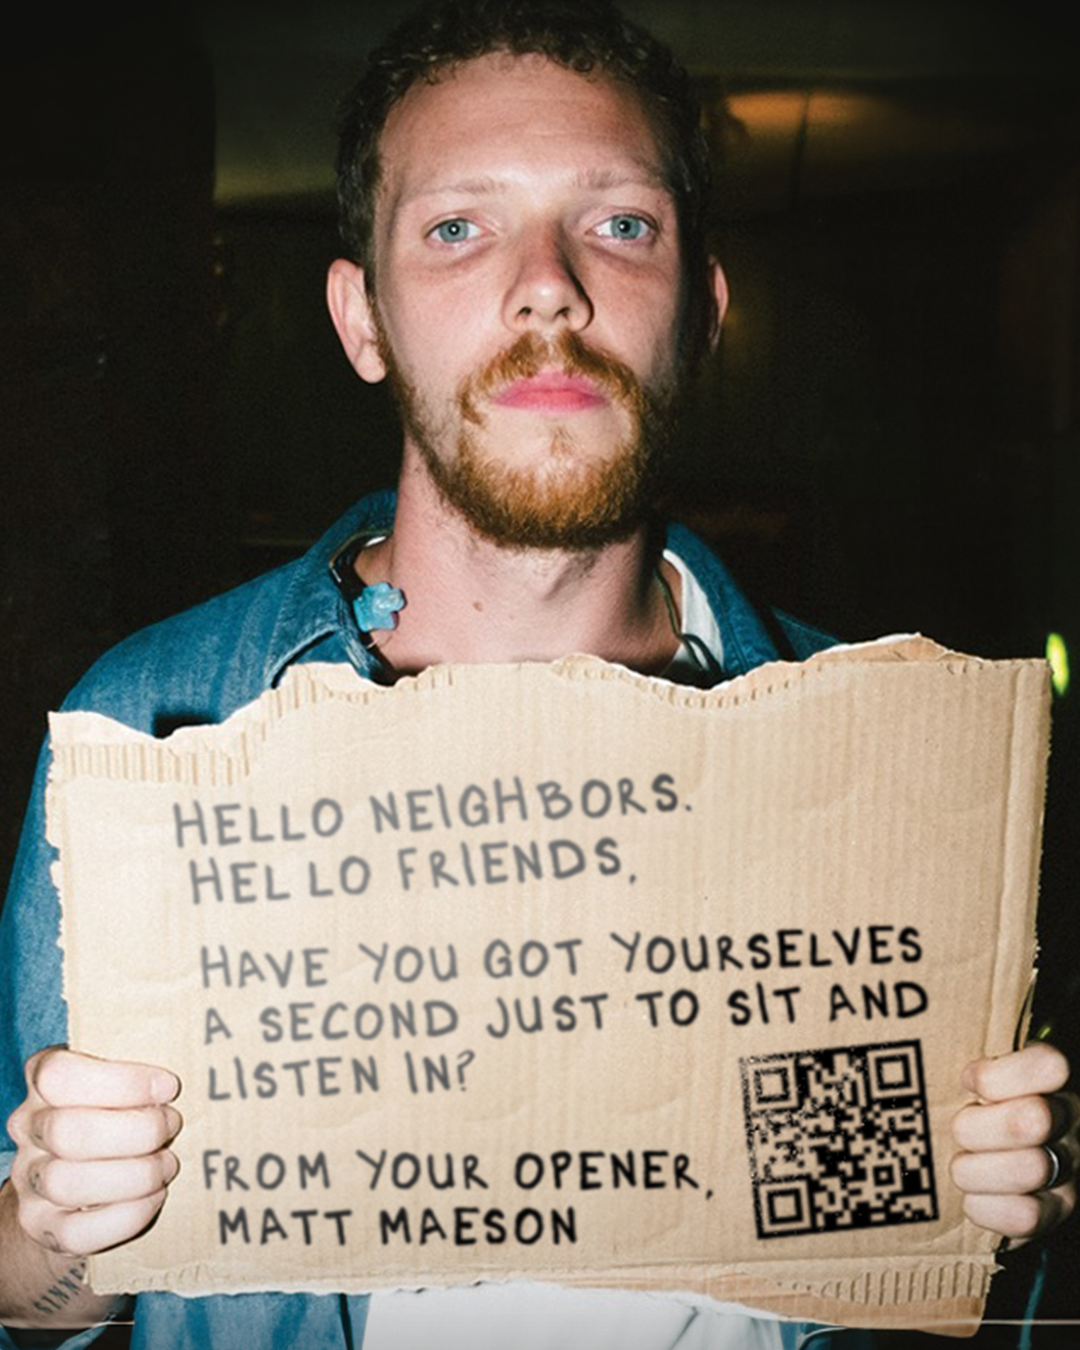 HELLO NEIGHBORS.
HELLO FRIENDS,
HAVE YOU GOT YOURSELVES
A SECOND JUST TO SIT AND
LISTEN IN?
FROM YOUR OPENER,
MATT MAESON